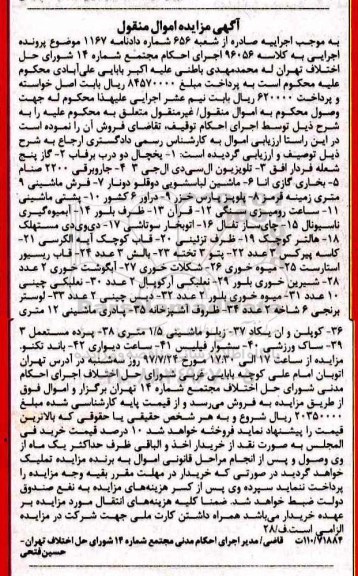 آگهی مزایده اموال منقول
به موجب اجراییه صادره از شعبه ۶۵۶ شماره دادنامه ۱۱۶۷ موضوع پرونده
اجرایی به کلاسه ۹۶۰۵۶ اجرای احکام مجتمع شماره ۱۴ شورای حل
اختلاف تهران له محمدمهدی باطنی علیه اکبر بابایی علی‌آبادی محکوم
علیه محکوم است به پرداخت مبلغ ۸۴۵۷۰۰۰۰ ریال بابت اصل خواسته
و پرداخت ۶۲۰۰۰۰ ریال بابت نیم عشر اجرایی علیهذا محکوم له جهت
وصول محکوم به اموال منقول/ غیرمنقول متعلق به محکوم علیه را به
شرح ذیل توسط اجرای احکام توقیف، تقاضای فروش آن را نموده است
در این راستا ارزیابی اموال به کارشناس رسمی دادگستری ارجاع به شرح
ذیل توصیف و ارزیابی گردیده است: ۱- یخچال دو درب برفاب ۲- گاز پنج
شعله فردار افق ۳- تلویزیون ال‌سی‌دی ال‌جی ۴- جاروبرقی ۲۲۰۰ صنام
۵- بخاری گازی آنا ۶- ماشین لباسشویی دوقلو دونار ۷- فرش ماشینی ۹
متری زمینه قرمز ۸- پلوپز پارس خزر ۹- دراور ۶ کشور ۱۰- پشتی ماشینی
۱۱- ساعت رومیزی سنگی ۱۲- قرآن ۱۳- ظرف بلور ۱۴- آبمیوه‌گیری
ناسیونال ۱۵- چای‌ساز تفال ۱۶- اتوبخار سوتاشی ۱۷- دی‌وی‌دی مستهلک
۱۸- هالتر کوچک ۱۹- ظرف تزئینی ۲۰- قاب کوچک آیه الکرسی ۲۱-
کاسه پیرکس ۲ عدد ۲۲- پتو ۲ تخته ۲۳- بالش ۳ عدد ۲۴- قاب ریسیور
استارست ۲۵- میوه خوری ۲۶- شکلات خوری ۲۷- آبگوشت خوری ۲ عدد
۲۸- شیرین خوری بلور ۲۹- نعلبکی آرکوپال ۲ عدد ۳۰- نعلبکی چینی
۱۰ عدد ۳۱- میوه خوری بلور ۲ عدد ۳۲- دیس چینی ۲ عدد ۳۳- لوستر
برنجی ۶ شاخه ۲ عدد ۳۴- ظروف آشپزخانه ۳۵- پادری ماشینی ۱۲ متری
۳۶- کوپلن و ان پیکاد ۳۷- زیلو ماشینی ۱/۵ متری ۳۸- پرده مستعمل ۳
۳۹- ساک ورزشی ۴۰- سشوار فیلیس ۴۱- ساعت دیواری ۴۲- باند تکنو.
مزایده از ساعت ۱۷ الی ۱۷:۳۰ مورخ ۹۷/۷/۲۴ روز سه‌شنبه در آدرس تهران
اتوبان امام علی کوچه بابایی غربی شورای حل اختلاف اجرای احکام
مدنی شورای حل اختلاف مجتمع شماره ۱۴ تهران برگزار و اموال فوق
از طریق مزایده به فروش می‌رسد و از قیمت پایه کارشناسی شده مبلغ
۲۰۳۵۰۰۰۰ ریال شروع و به هر شخص حقیقی یا حقوقی که بالاترین
قیمت را پیشنهاد نماید فروخته خواهد شد. ۱۰ درصد قیمت خرید فی
المجلس به صورت نقد از خریدار اخذ و الباقی ظرف حداکثر یک ماه از
وی وصول و پس از انجام مراحل قانونی اموال به برنده مزایده تملیک
خواهد گردید در صورتی که خریدار در مهلت مقرر بقیه وجه مزایده را
پرداخت ننماید سپرده وی پس از کسر هزینه‌های مزایده به نفع صندوق
دولت ضبط خواهد شد. ضمنا کلیه هزینه‌های انتقال مورد مزایده بر
عهده خریدار می‌باشد همراه داشتن کارت ملی جهت شرکت در مزایده
الزامی است. ف/۲۸
۱۱۰/۷۱۸۸۴ت قاضی/ مدیر اجرای احکام مدنی مجتمع شماره ۱۴ شورای حل اختلاف تهران-
حسین فتحی